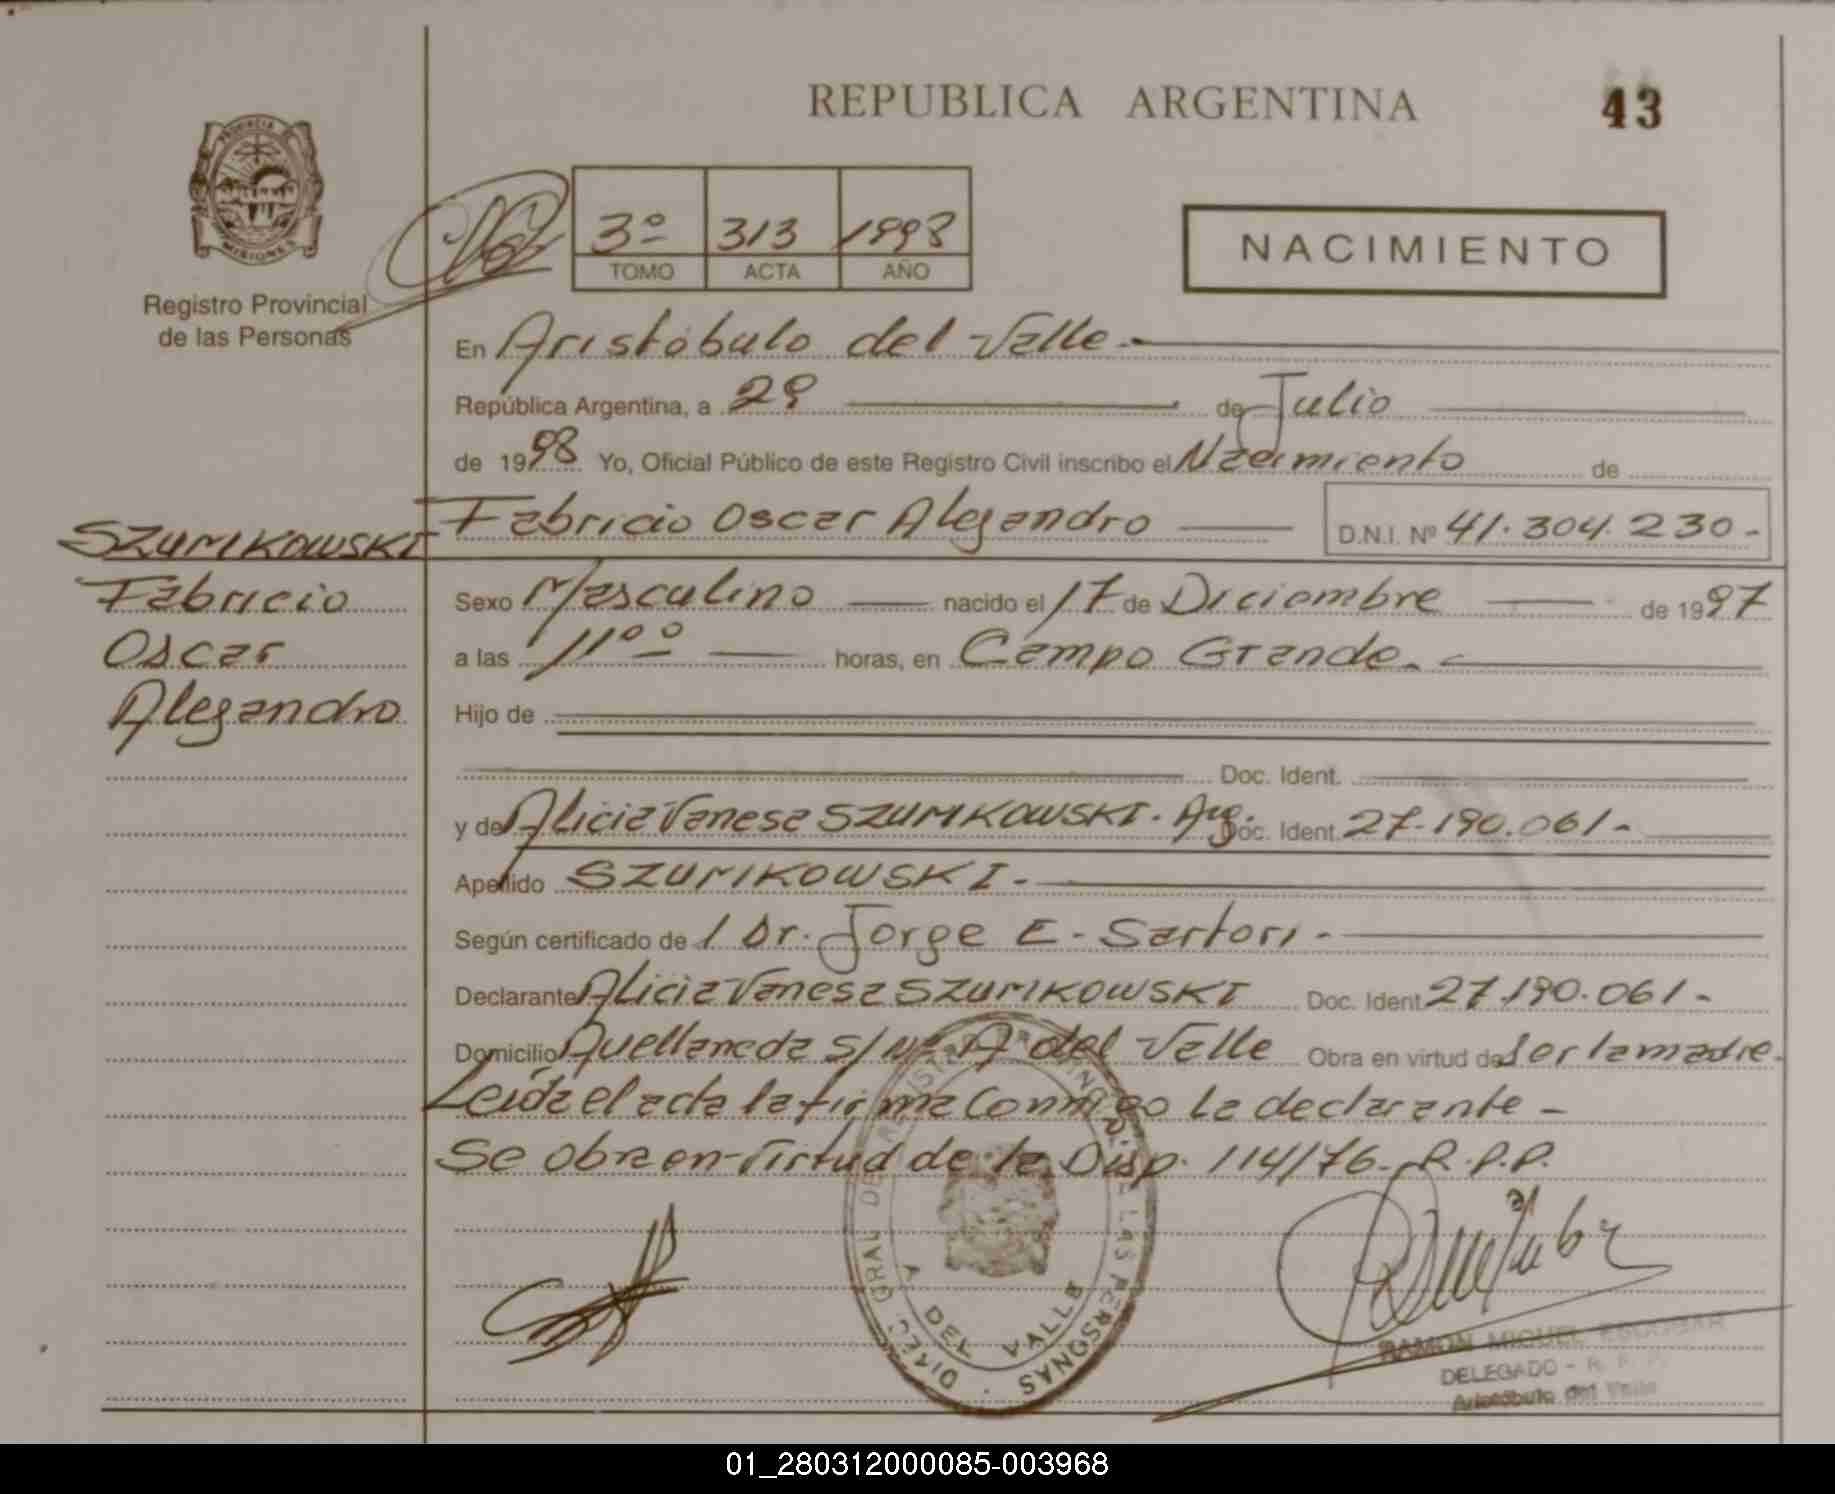 REPUBLICA ARGENTINA
43
PROVINCIA DE
MISIONES
Registro Provincial
de las Personas
3º 313 1998
TOMO ACTA AÑO
NACIMIENTO
En Aristóbulo del Valle.-
República Argentina, a 29 de Julio
de 1998 Yo, Oficial Público de este Registro Civil inscribo el Nacimiento de
Fabricio Oscar Alejandro D.N.I. Nº 41.304.230-
SZUMKOWSKI
Fabricio
Oscar
Alejandro
Sexo Masculino nacido el 17 de Diciembre de 1997
a las 11ºº horas, en Campo Grande.-
Hijo de
Doc. Ident.
y de Alicia Vanesa SZUMKOWSKI. Arg. Doc. Ident. 27.190.061-
Apellido SZUMKOWSKI.-
Según certificado de / Dr. Jorge E. Sartori.-
Declarante Alicia Vanesa SZUMKOWSKI Doc. Ident. 27.190.061-
Domicilio Avellaneda s/nº A del Valle Obra en virtud de Ser la madre.
Leída el acta la firma Conmigo La declarante-
Se obra en virtud de la Disp. 114/76- R.P.P.
DIREC. GRAL DE REGISTRO PROVINC. DE LAS PERSONAS
A DEL VALLE
RAMON MIGUEL ESCOBAR
DELEGADO - R. P. P.
Aristóbulo del Valle
01_280312000085-003968